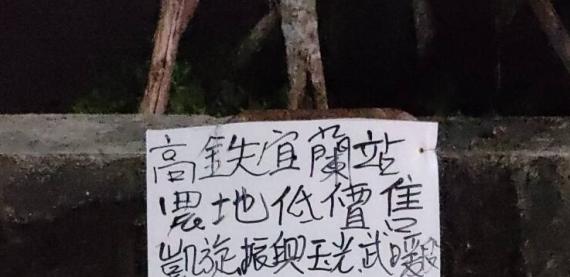 高鉄宜蘭站
農地低價售
凱旋振興玉光武暖段